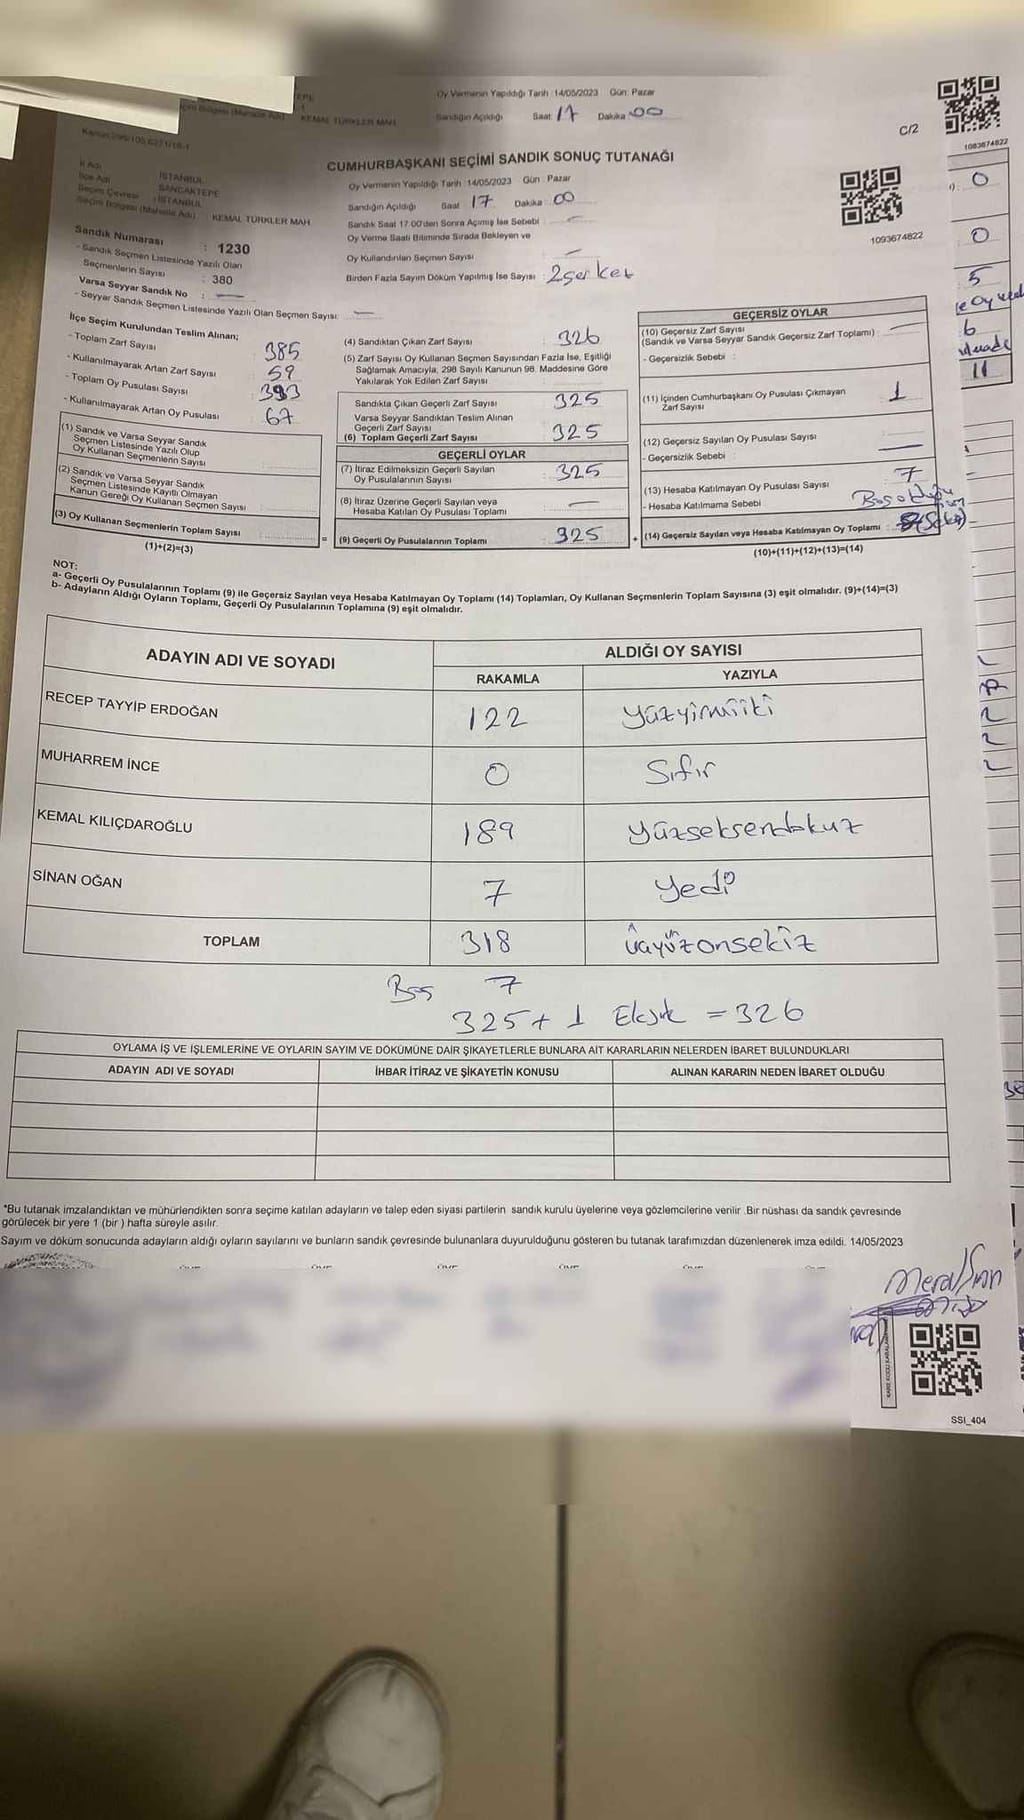 Oy Vermenin Yapıldığı Tarih :14/05/2023 Gün: Pazar
Sandığın Açıldığı Saat 17 Dakika 00
KEMAL TÜRKLER MAH.
C/2
1093674822
CUMHURBAŞKANI SEÇİMİ SANDIK SONUÇ TUTANAĞI
İl Adı : İSTANBUL
İlçe Adı : SANCAKTEPE
Seçim Çevresi : İSTANBUL
Seçim Bölgesi (Mahalle Adı) : KEMAL TÜRKLER MAH.
Oy Vermenin Yapıldığı Tarih :14/05/2023 Gün : Pazar
Sandığın Açıldığı Saat 17 Dakika : 00
Sandık Saat 17:00'den Sonra Açılmış İse Sebebi : —
Oy Verme Saati Bitiminde Sırada Bekleyen ve
Oy Kullandırılan Seçmen Sayısı —
Birden Fazla Sayım Döküm Yapılmış İse Sayısı : 2şer kez
1093674822
Sandık Numarası : 1230
- Sandık Seçmen Listesinde Yazılı Olan
Seçmenlerin Sayısı : 380
Varsa Seyyar Sandık No : —
- Seyyar Sandık Seçmen Listesinde Yazılı Olan Seçmen Sayısı: —
İlçe Seçim Kurulundan Teslim Alınan;
- Toplam Zarf Sayısı 385
- Kullanılmayarak Artan Zarf Sayısı 59
- Toplam Oy Pusulası Sayısı 393
- Kullanılmayarak Artan Oy Pusulası 67
(1) Sandık ve Varsa Seyyar Sandık
Seçmen Listesinde Yazılı Olup
Oy Kullanan Seçmenlerin Sayısı
(2) Sandık ve Varsa Seyyar Sandık
Seçmen Listesinde Kayıtlı Olmayan
Kanun Gereği Oy Kullanan Seçmen Sayısı
(3) Oy Kullanan Seçmenlerin Toplam Sayısı
(1)+(2)=(3)
(4) Sandıktan Çıkan Zarf Sayısı 326
(5) Zarf Sayısı Oy Kullanan Seçmen Sayısından Fazla İse, Eşitliği
Sağlamak Amacıyla, 298 Sayılı Kanunun 98. Maddesine Göre
Yakılarak Yok Edilen Zarf Sayısı
Sandıkta Çıkan Geçerli Zarf Sayısı 325
Varsa Seyyar Sandıktan Teslim Alınan
Geçerli Zarf Sayısı
(6) Toplam Geçerli Zarf Sayısı 325
GEÇERLİ OYLAR
(7) İtiraz Edilmeksizin Geçerli Sayılan
Oy Pusulalarının Sayısı 325
(8) İtiraz Üzerine Geçerli Sayılan veya
Hesaba Katılan Oy Pusulası Toplamı —
= (9) Geçerli Oy Pusulalarının Toplamı 325
GEÇERSİZ OYLAR
(10) Geçersiz Zarf Sayısı
(Sandık ve Varsa Seyyar Sandık Geçersiz Zarf Toplamı) : —
- Geçersizlik Sebebi :
(11) İçinden Cumhurbaşkanı Oy Pusulası Çıkmayan
Zarf Sayısı 1
(12) Geçersiz Sayılan Oy Pusulası Sayısı —
- Geçersizlik Sebebi : —
(13) Hesaba Katılmayan Oy Pusulası Sayısı 7
- Hesaba Katılmama Sebebi Boş olduğu
+ (14) Geçersiz Sayılan veya Hesaba Katılmayan Oy Toplamı 8 (Sekiz)
(10)+(11)+(12)+(13)=(14)
NOT:
a- Geçerli Oy Pusulalarının Toplamı (9) ile Geçersiz Sayılan veya Hesaba Katılmayan Oy Toplamı (14) Toplamları, Oy Kullanan Seçmenlerin Toplam Sayısına (3) eşit olmalıdır. (9)+(14)=(3)
b- Adayların Aldığı Oyların Toplamı, Geçerli Oy Pusulalarının Toplamına (9) eşit olmalıdır.
ADAYIN ADI VE SOYADI ALDIĞI OY SAYISI
RAKAMLA YAZIYLA
RECEP TAYYİP ERDOĞAN 122 yüzyirmiiki
MUHARREM İNCE 0 Sıfır
KEMAL KILIÇDAROĞLU 189 yüzseksendokuz
SİNAN OĞAN 7 yedi
TOPLAM 318 üçyüzonsekiz
Boş 7
325 + 1 Eksik = 326
OYLAMA İŞ VE İŞLEMLERİNE VE OYLARIN SAYIM VE DÖKÜMÜNE DAİR ŞİKAYETLERLE BUNLARA AİT KARARLARIN NELERDEN İBARET BULUNDUKLARI
ADAYIN ADI VE SOYADI İHBAR İTİRAZ VE ŞİKAYETİN KONUSU ALINAN KARARIN NEDEN İBARET OLDUĞU
*Bu tutanak imzalandıktan ve mühürlendikten sonra seçime katılan adayların ve talep eden siyasi partilerin sandık kurulu üyelerine veya gözlemcilerine verilir .Bir nüshası da sandık çevresinde
görülecek bir yere 1 (bir ) hafta süreyle asılır.
Sayım ve döküm sonucunda adayların aldığı oyların sayılarını ve bunların sandık çevresinde bulunanlara duyurulduğunu gösteren bu tutanak tarafımızdan düzenlenerek imza edildi. 14/05/2023
SSI_404
0
0
5
6
11